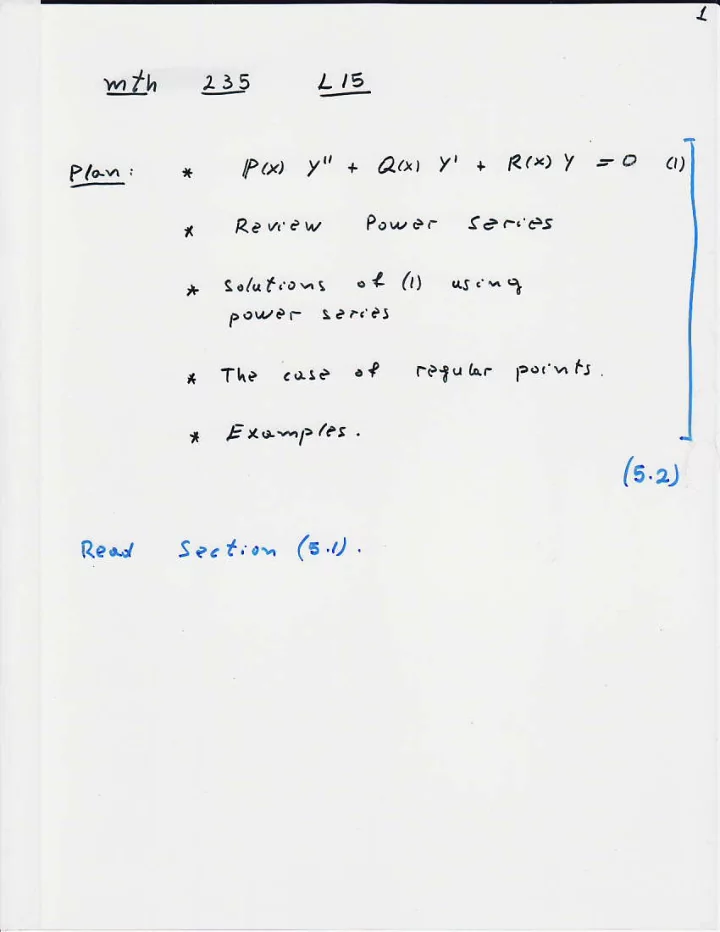 1
mth 235 L15
Plan: * P(x) y'' + Q(x) y' + R(x) y = 0 (1)
* Review Power Series
* Solutions of (1) using
power series
* The case of regular points.
* Examples.
(5.2)
Read Section (5.1).